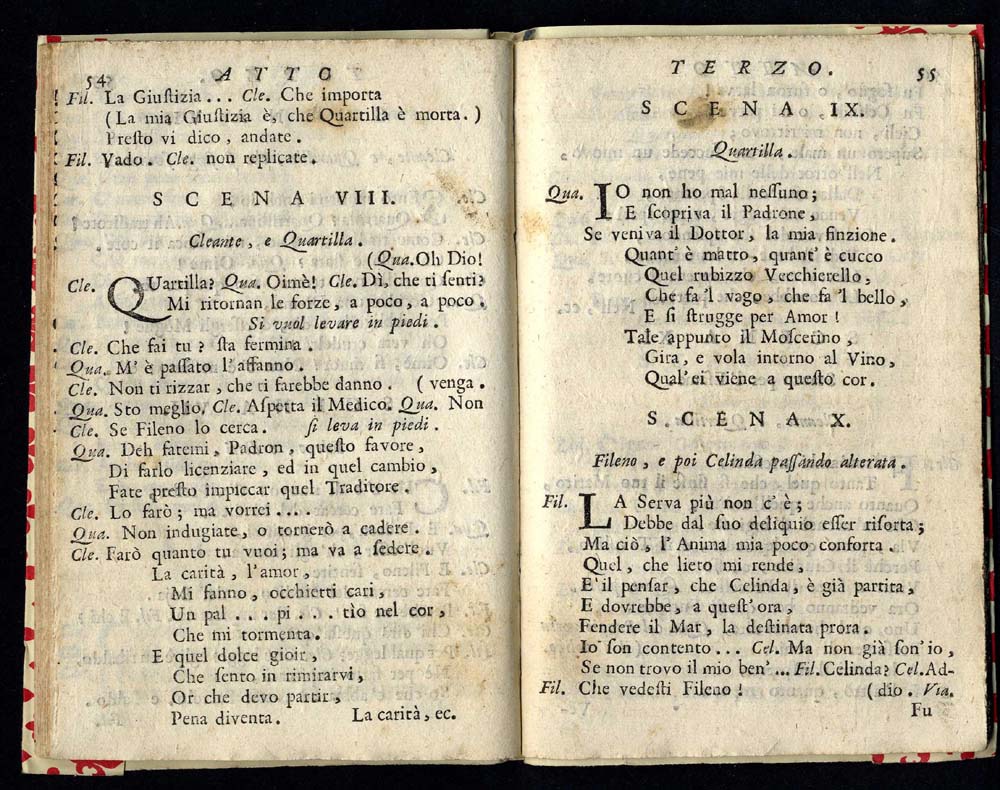 54 ATTO
Fil. La Giuſtizia... Cle. Che importa
(La mia Giuſtizia è, che Quartilla è morta.)
Preſto vi dico, andate.
Fil. Vado. Cle. non replicate.
SCENA VIII.
Cleante, e Quartilla.
(Qua. Oh Dio!
Cle. QUartilla? Qua. Oimè! Cle. Dì, che ti ſenti?
Mi ritornan le forze, a poco, a poco
Si vuol levare in piedi.
Cle. Che fai tu? ſta fermina.
Qua. M' è paſſato l'affanno.
Cle. Non ti rizzar, che ti farebbe danno. (venga.
Qua. Sto meglio. Cle. Aſpetta il Medico. Qua. Non
Cle. Se Fileno lo cerca. ſi leva in piedi.
Qua. Deh fatemi, Padron, queſto favore,
Di farlo licenziare, ed in quel cambio,
Fate preſto impiccar quel Traditore.
Cle. Lo farò; ma vorrei....
Qua. Non indugiate, o tornerò a cadere.
Cle. Farò quanto tu vuoi; ma va a ſedere.
La carità, l'amor,
Mi fanno, occhietti cari,
Un pal...pi...tìo nel cor,
Che mi tormenta.
E quel dolce gioir,
Che ſento in rimirarvi,
Or che devo partir,
Pena diventa. La carità, ec.
TERZO. 55
SCENA IX.
Quartilla.
Qua. IO non ho mal neſſuno;
E ſcopriva il Padrone,
Se veniva il Dottor, la mia finzione.
Quant' è matto, quant' è cucco
Quel rubizzo Vecchierello,
Che fa 'l vago, che fa 'l bello,
E ſi ſtrugge per Amor!
Tale appunto il Moſcerino,
Gira, e vola intorno al Vino,
Qual' ei viene a queſto cor.
SCENA X.
Fileno, e poi Celinda paſſando alterata.
Fil. LA Serva più non c' è;
Debbe dal ſuo deliquio eſſer riſorta;
Ma ciò, l' Anima mia poco conforta.
Quel, che lieto mi rende,
E' il penſar, che Celinda, è già partita,
E dovrebbe, a queſt' ora,
Fendere il Mar, la deſtinata prora.
Io ſon contento... Cel. Ma non già ſon' io,
Se non trovo il mio ben'... Fil. Celinda? Cel. Ad-
Fil. Che vedeſti Fileno! (dio. Via.
Fu